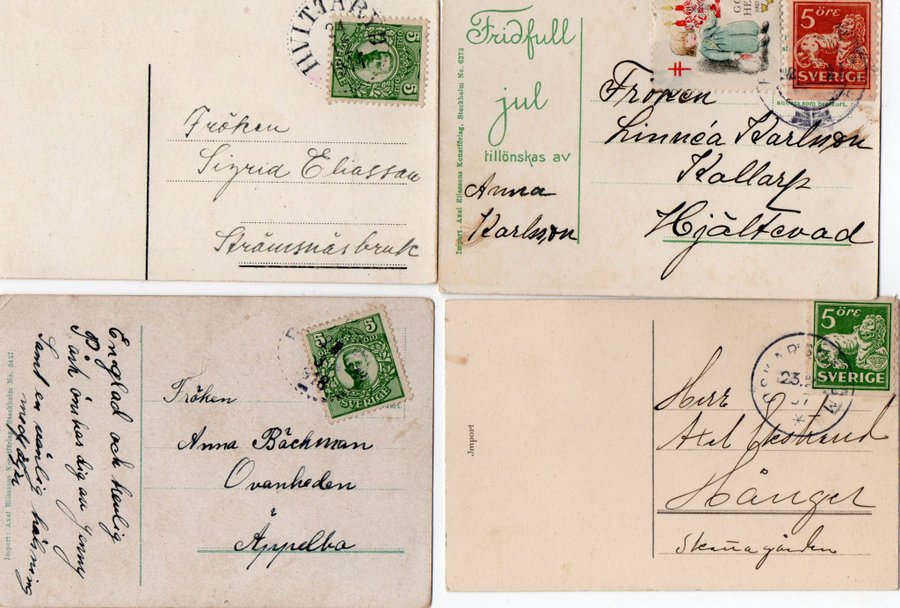 HVITTARYD
5
SVERIGE
5
Fröken
Sigrid Eliasson
Strömsnäsbruk
Fridfull
jul
tillönskas av
Anna
Karlsson
Import: Axel Eliassons Konstförlag, Stockholm No. 6273
GOD
5 ÖRE
SVERIGE
Fröken
Linnéa Karlsson
Kallarp
Hjältevad
Import: Axel Eliassons Konstförlag, Stockholm No. 5427
Englad och herlig
Påsk önskas dig av Jenny
Samt en vänlig hälsning
5
5
SVERIGE
Fröken
Anna Bäckman
Ovanheden
Äppelbo
Import
5 ÖRE
SVERIGE
23
Herr
Axel Ekstrand
Hånger